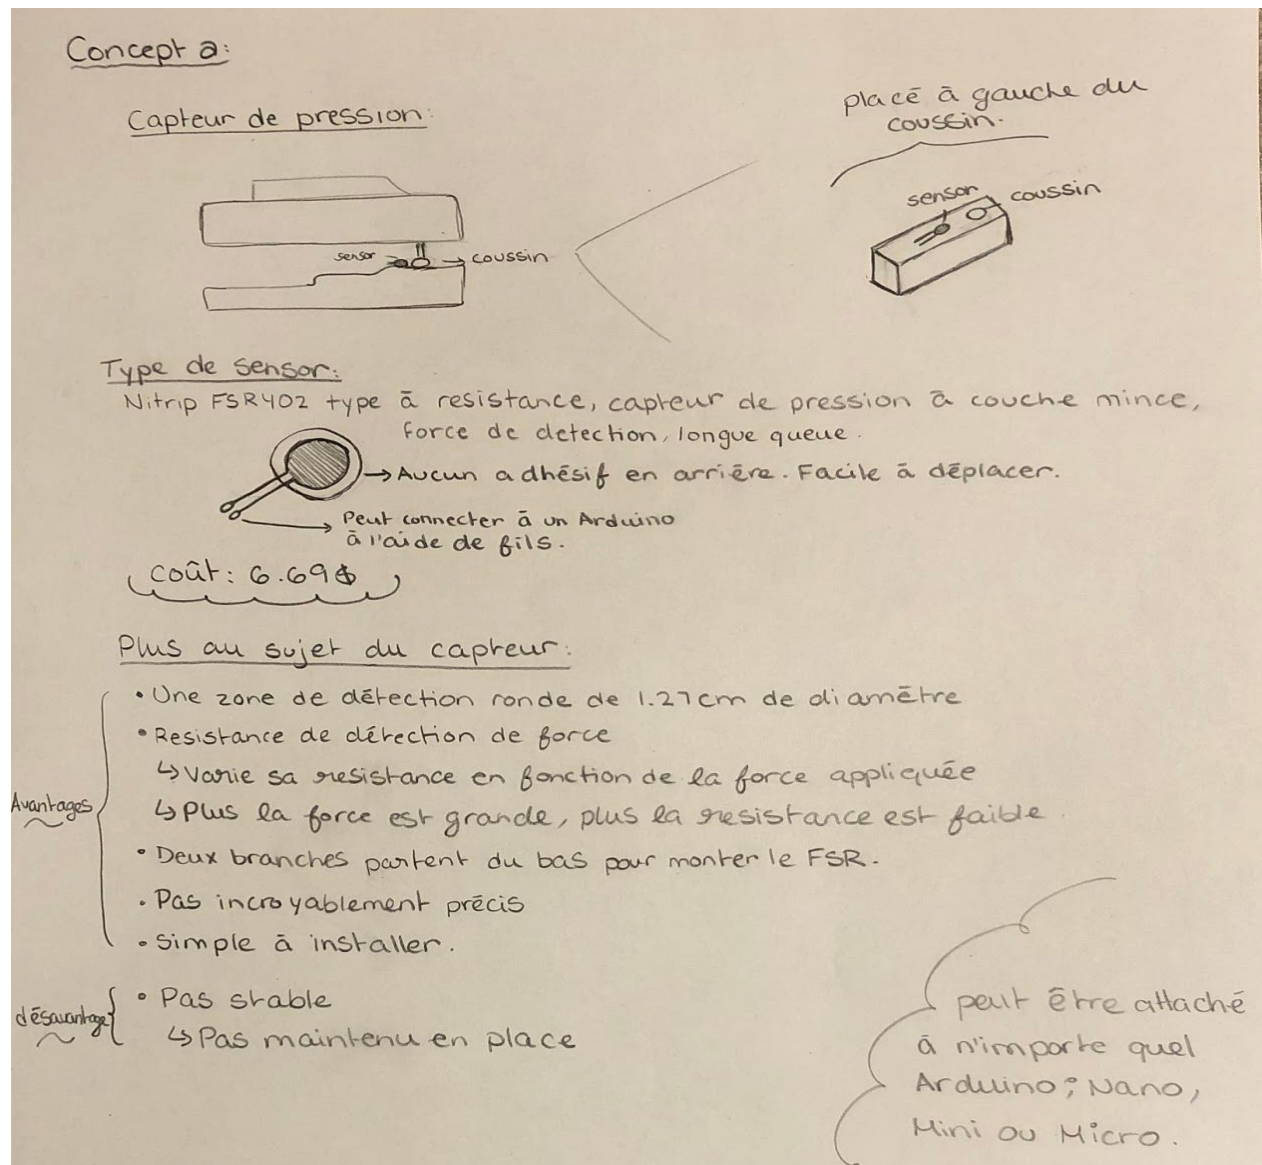 Concept 2:
Capteur de pression:
placé à gauche du
coussin.
sensor
coussin
sensor
coussin
Type de sensor:
Nitrip FSR402 type à resistance, capteur de pression à couche mince,
force de detection, longue queue.
Aucun adhésif en arrière. Facile à déplacer.
Peut connecter à un Arduino
à l'aide de fils.
Coût: 6.69$
Plus au sujet du capteur:
Avantages
• Une zone de détection ronde de 1.27cm de diamètre
• Resistance de détection de force
↳ Varie sa resistance en fonction de la force appliquée
↳ Plus la force est grande, plus la resistance est faible.
• Deux branches partent du bas pour monter le FSR.
• Pas incroyablement précis
• Simple à installer.
désavantage
• Pas stable
↳ Pas maintenu en place
peut être attaché
à n'importe quel
Arduino; Nano,
Mini ou Micro.